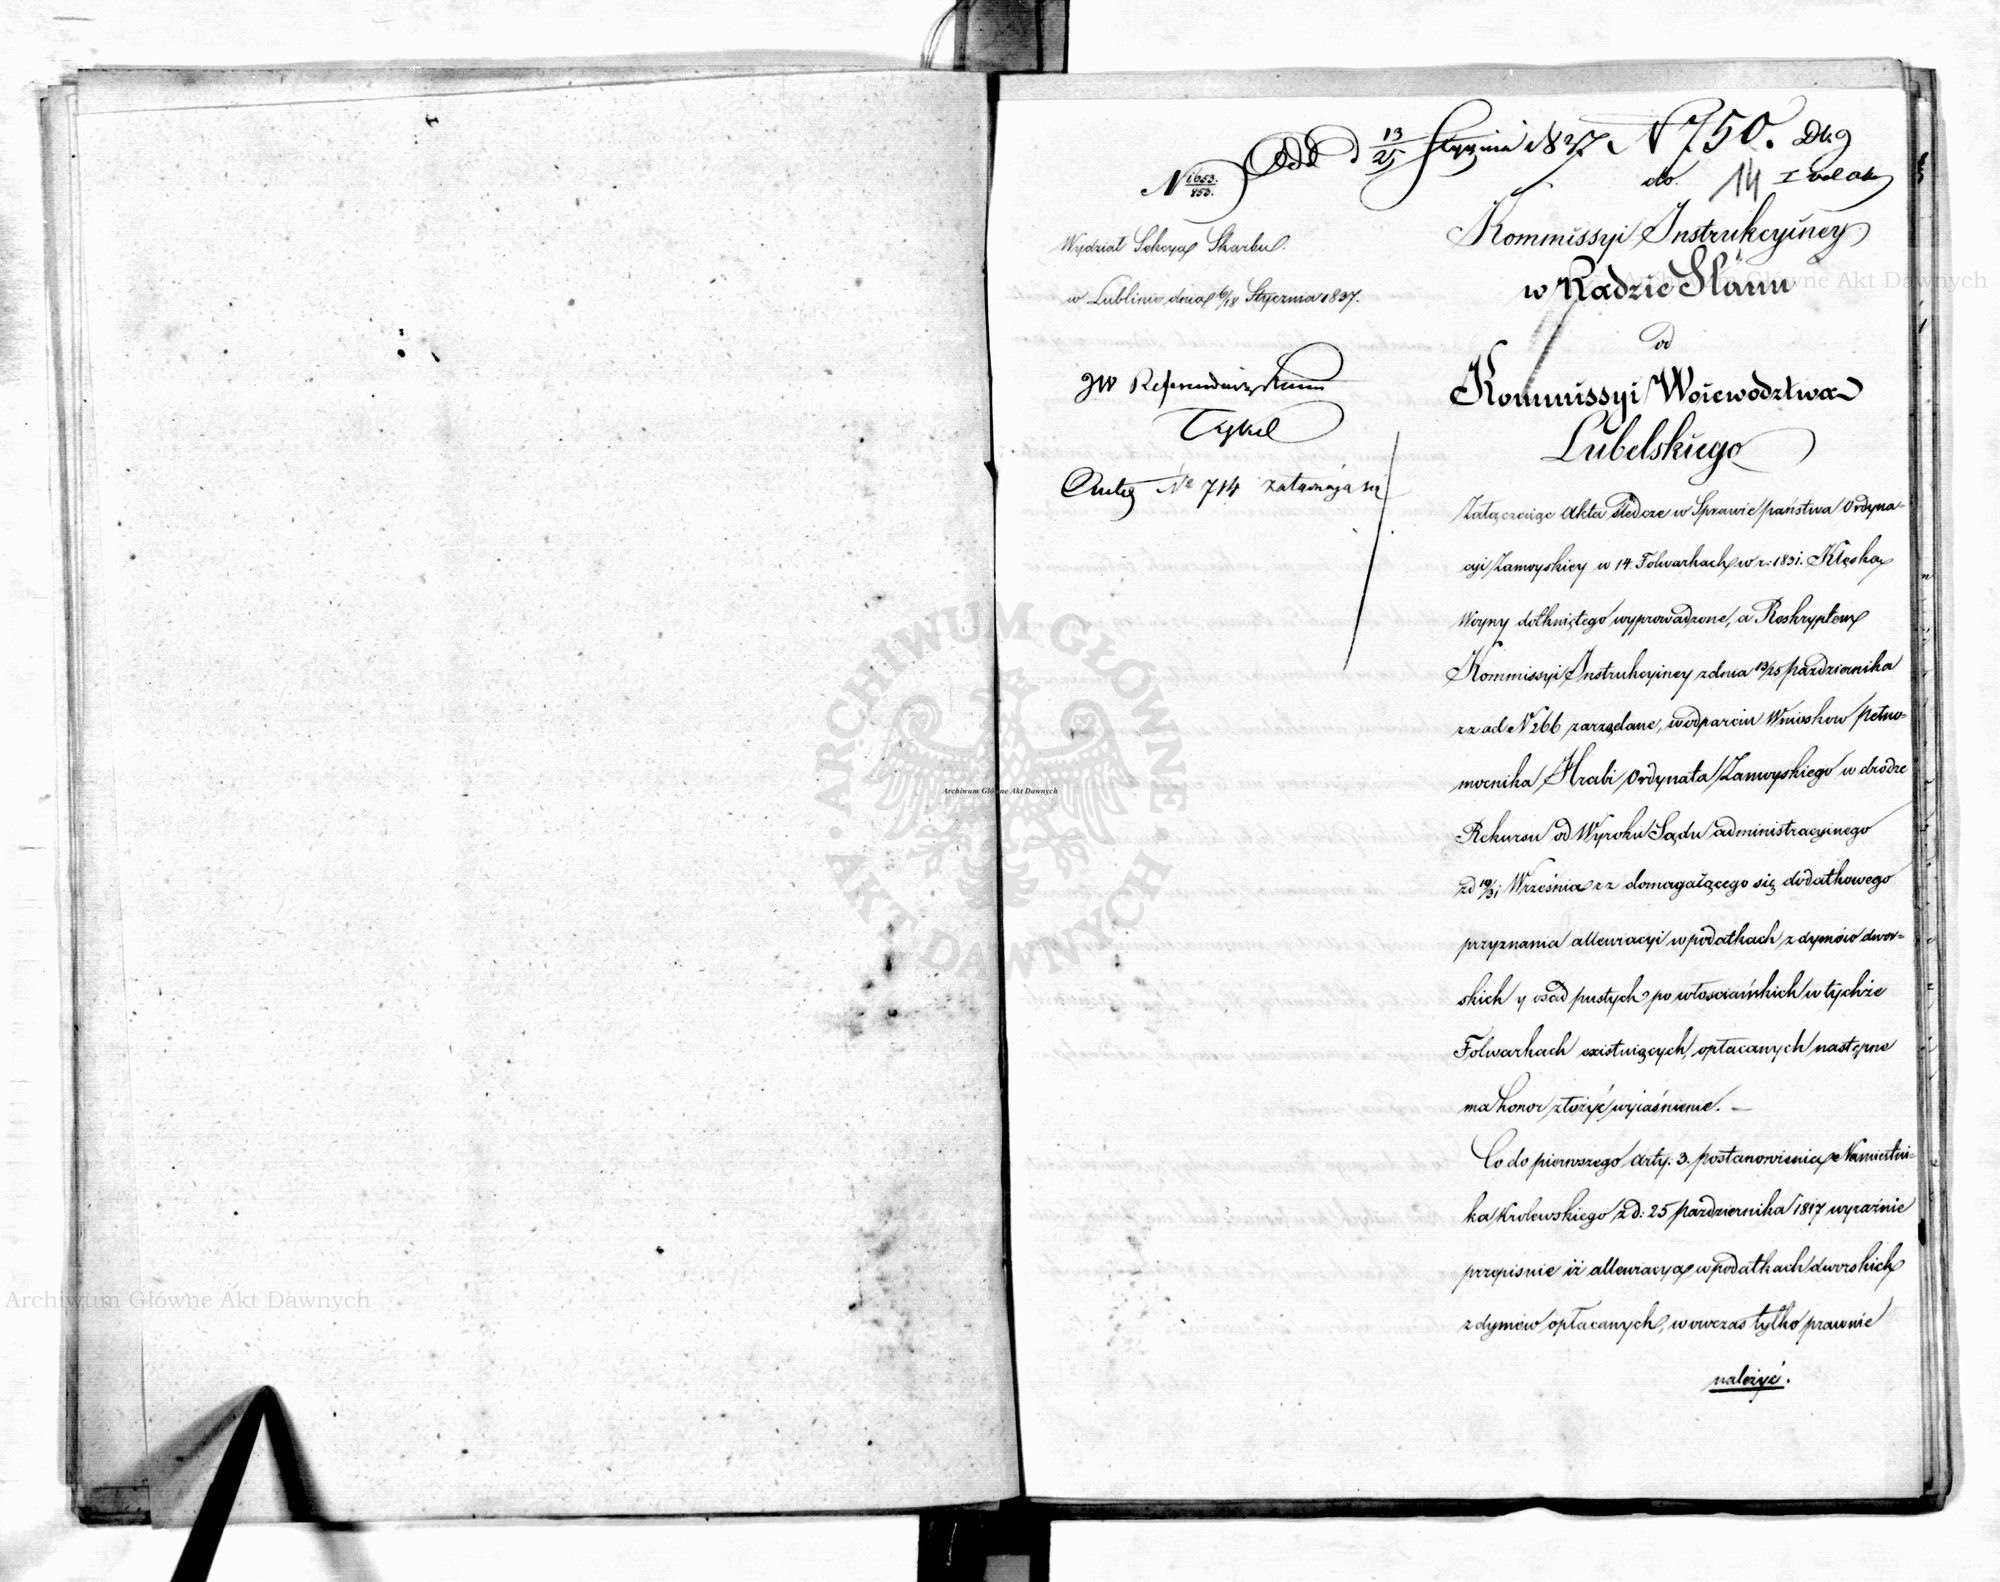 Odd d 13/25 Stycznia 1837 N 750.
do. 14
N 1653./453.
Wydział Sekcya Skarbu.
w Lublinie dnia 6/18 Stycznia 1837.
JW Referendarz Stanu
Tykel
Anteq № 714 załatwiają się
Kommissyi Instrukcyiney
w Radzie Stanu
od
Kommissyi Woiewodztwa
Lubelskiego
Załączaiąc Akta śledcze w Sprawie państwa Ordyna-
cyi Zamoyskiey w 14. Folwarkach w r: 1831. Klęską
Woyny dotkniętego wyprowadzone, a Reskryptem
Kommissyi Instrukcyiney z dnia 13/25 Października
rz ad N 266 zarządane, w odparciu Wniosków pełno-
mocnika Hrabi Ordynata Zamoyskiego w drodze
Rekursu od Wyroku Sądu administracyinego
zd 19/31 Września rz domagaiącego się dodatkowego
przyznania allewiacyi w podatkach z dymów dwor-
skich y osad pustych po włosciańskich w tychże
Folwarkach existuiących, opłacanych następne
ma honor złożyć wyiaśnienie. —
Co do pierwszego Arty: 3. postanowienia Namiestni-
ka Krolewskiego z d: 25 Października 1817 wyraźnie
przepisuie iż allewiacya w podatkach dworskich
z dymów opłacanych, wowczas tylko prawnie
należyć.
Archiwum Główne Akt Dawnych
ARCHIWUM GŁÓWNE
AKT DAWNYCH
Archiwum Główne Akt Dawnych
Archiwum Główne Akt Dawnych